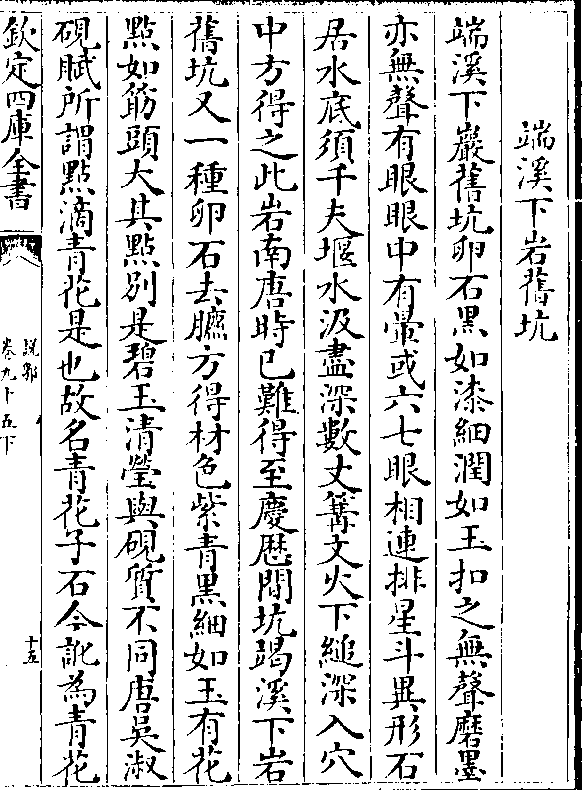 端溪下岩舊坑
端溪下巖舊坑卵石黒如漆細潤如玉扣之無聲磨墨
亦無聲有眼眼中有暈或六七眼相連排星斗異形石
居水底須千夫堰水汲盡深數丈篝文火下縋深入穴
中方得之此岩南唐時已難得至慶厯間坑竭溪下岩
舊坑又一種卵石去臕方得材色紫青黒細如玉有花
點如筯頭大其點别是碧玉清瑩與硯質不同唐吳淑
硯賦所謂點滴青花是也故名青花子石今訛為青花
欽定四庫全書
說郛
卷九十五下
十五